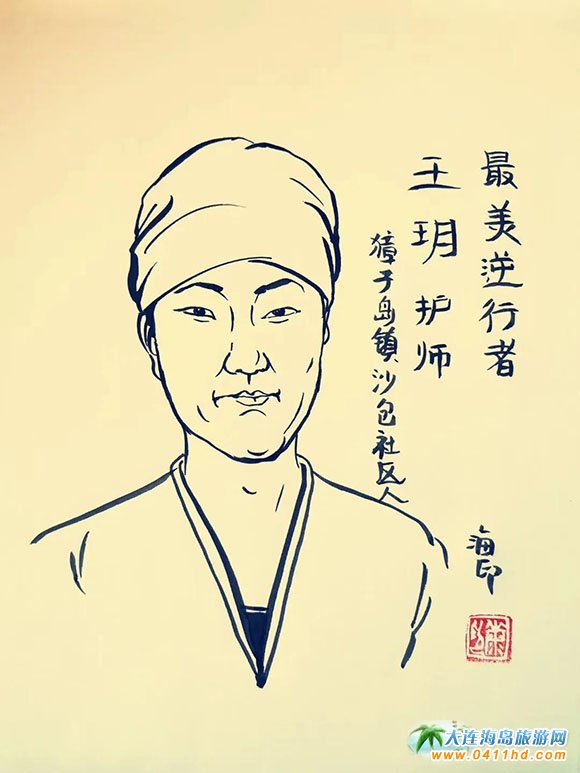 最美逆行者
王玥护师
獐子岛镇沙包社区人
海印
大连海岛旅游网
www.0411hd.com